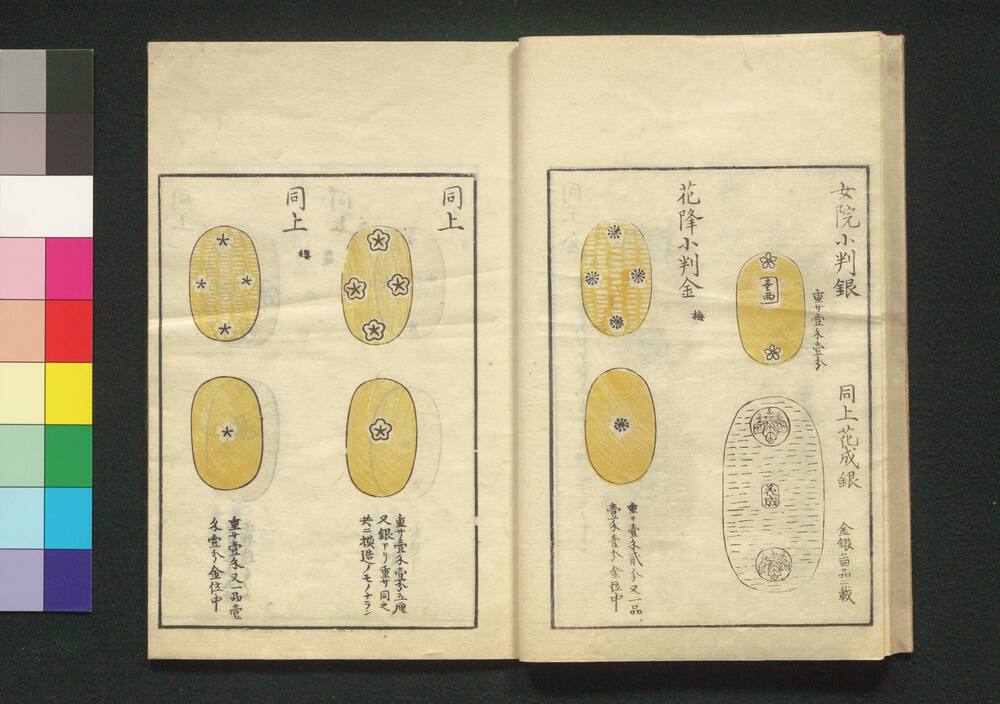 女院小判銀
重サ壹匁壹分
壹両
同上花成銀
金銀図品ニ載
花成
花降小判金
梅
重サ壹匁貳分又一品
壹匁壹分金位中
同上
重サ壹匁壹分五厘
又銀アリ重サ同之
共ニ模造ノモノナラン
同上
櫻
重サ壹匁又一品壹
匁壹分金位中